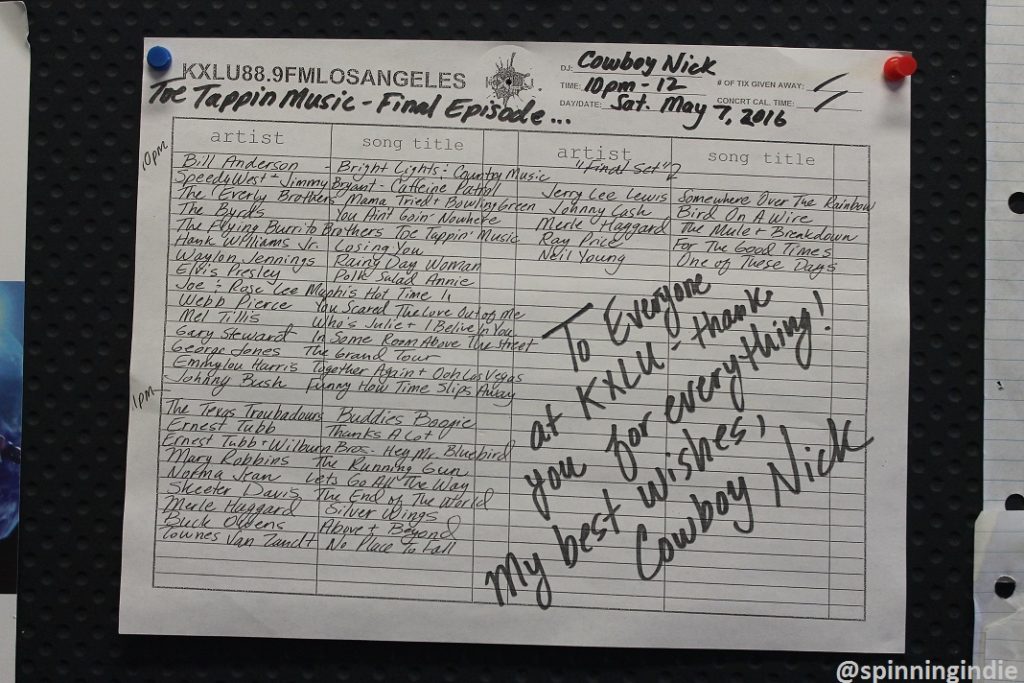 KXLU88.9FMLOSANGELES
Toe Tappin Music - Final Episode...
DJ: Cowboy Nick
TIME: 10pm-12
# OF TIX GIVEN AWAY:
DAY/DATE: Sat. May 7, 2016
CONCRT CAL. TIME:
artist song title
10pm
Bill Anderson - Bright Lights & Country Music
Speedy West + Jimmy Bryant - Caffeine Patrol
The Everly Brothers Mama Tried + Bowling Green
The Byrds You Aint Goin' Nowhere
The Flying Burrito Brothers Toe Tappin' Music
Hank Williams Jr. Losing You
Waylon Jennings Rainy Day Woman
Elvis Presley Polk Salad Annie
Joe & Rose Lee Maphis Hot Time
Webb Pierce You Scared The Love Out of Me
Mel Tillis Who's Julie + I Belive In You
Gary Stewart In Some Room Above The Street
George Jones The Grand Tour
Emmylou Harris Together Again + Ooh Las Vegas
Johnny Bush Funny How Time Slips Away
11pm
The Texas Troubadours Buddies Boogie
Ernest Tubb Thanks A Lot
Ernest Tubb + Wilburn Bros. - Hey Mr. Bluebird
Marty Robbins The Running Gun
Norma Jean Lets Go All The Way
Skeeter Davis The End of The World
Merle Haggard Silver Wings
Buck Owens Above + Beyond
Townes Van Zandt No Place To Fall
artist song title
"Final Set"
Jerry Lee Lewis Somewhere Over The Rainbow
Johnny Cash Bird On A Wire
Merle Haggard The Mule + Breakdown
Ray Price For The Good Times
Neil Young One of These Days
To Everyone
at KXLU - thank
you for everything!
My best wishes,
Cowboy Nick
@spinningindie